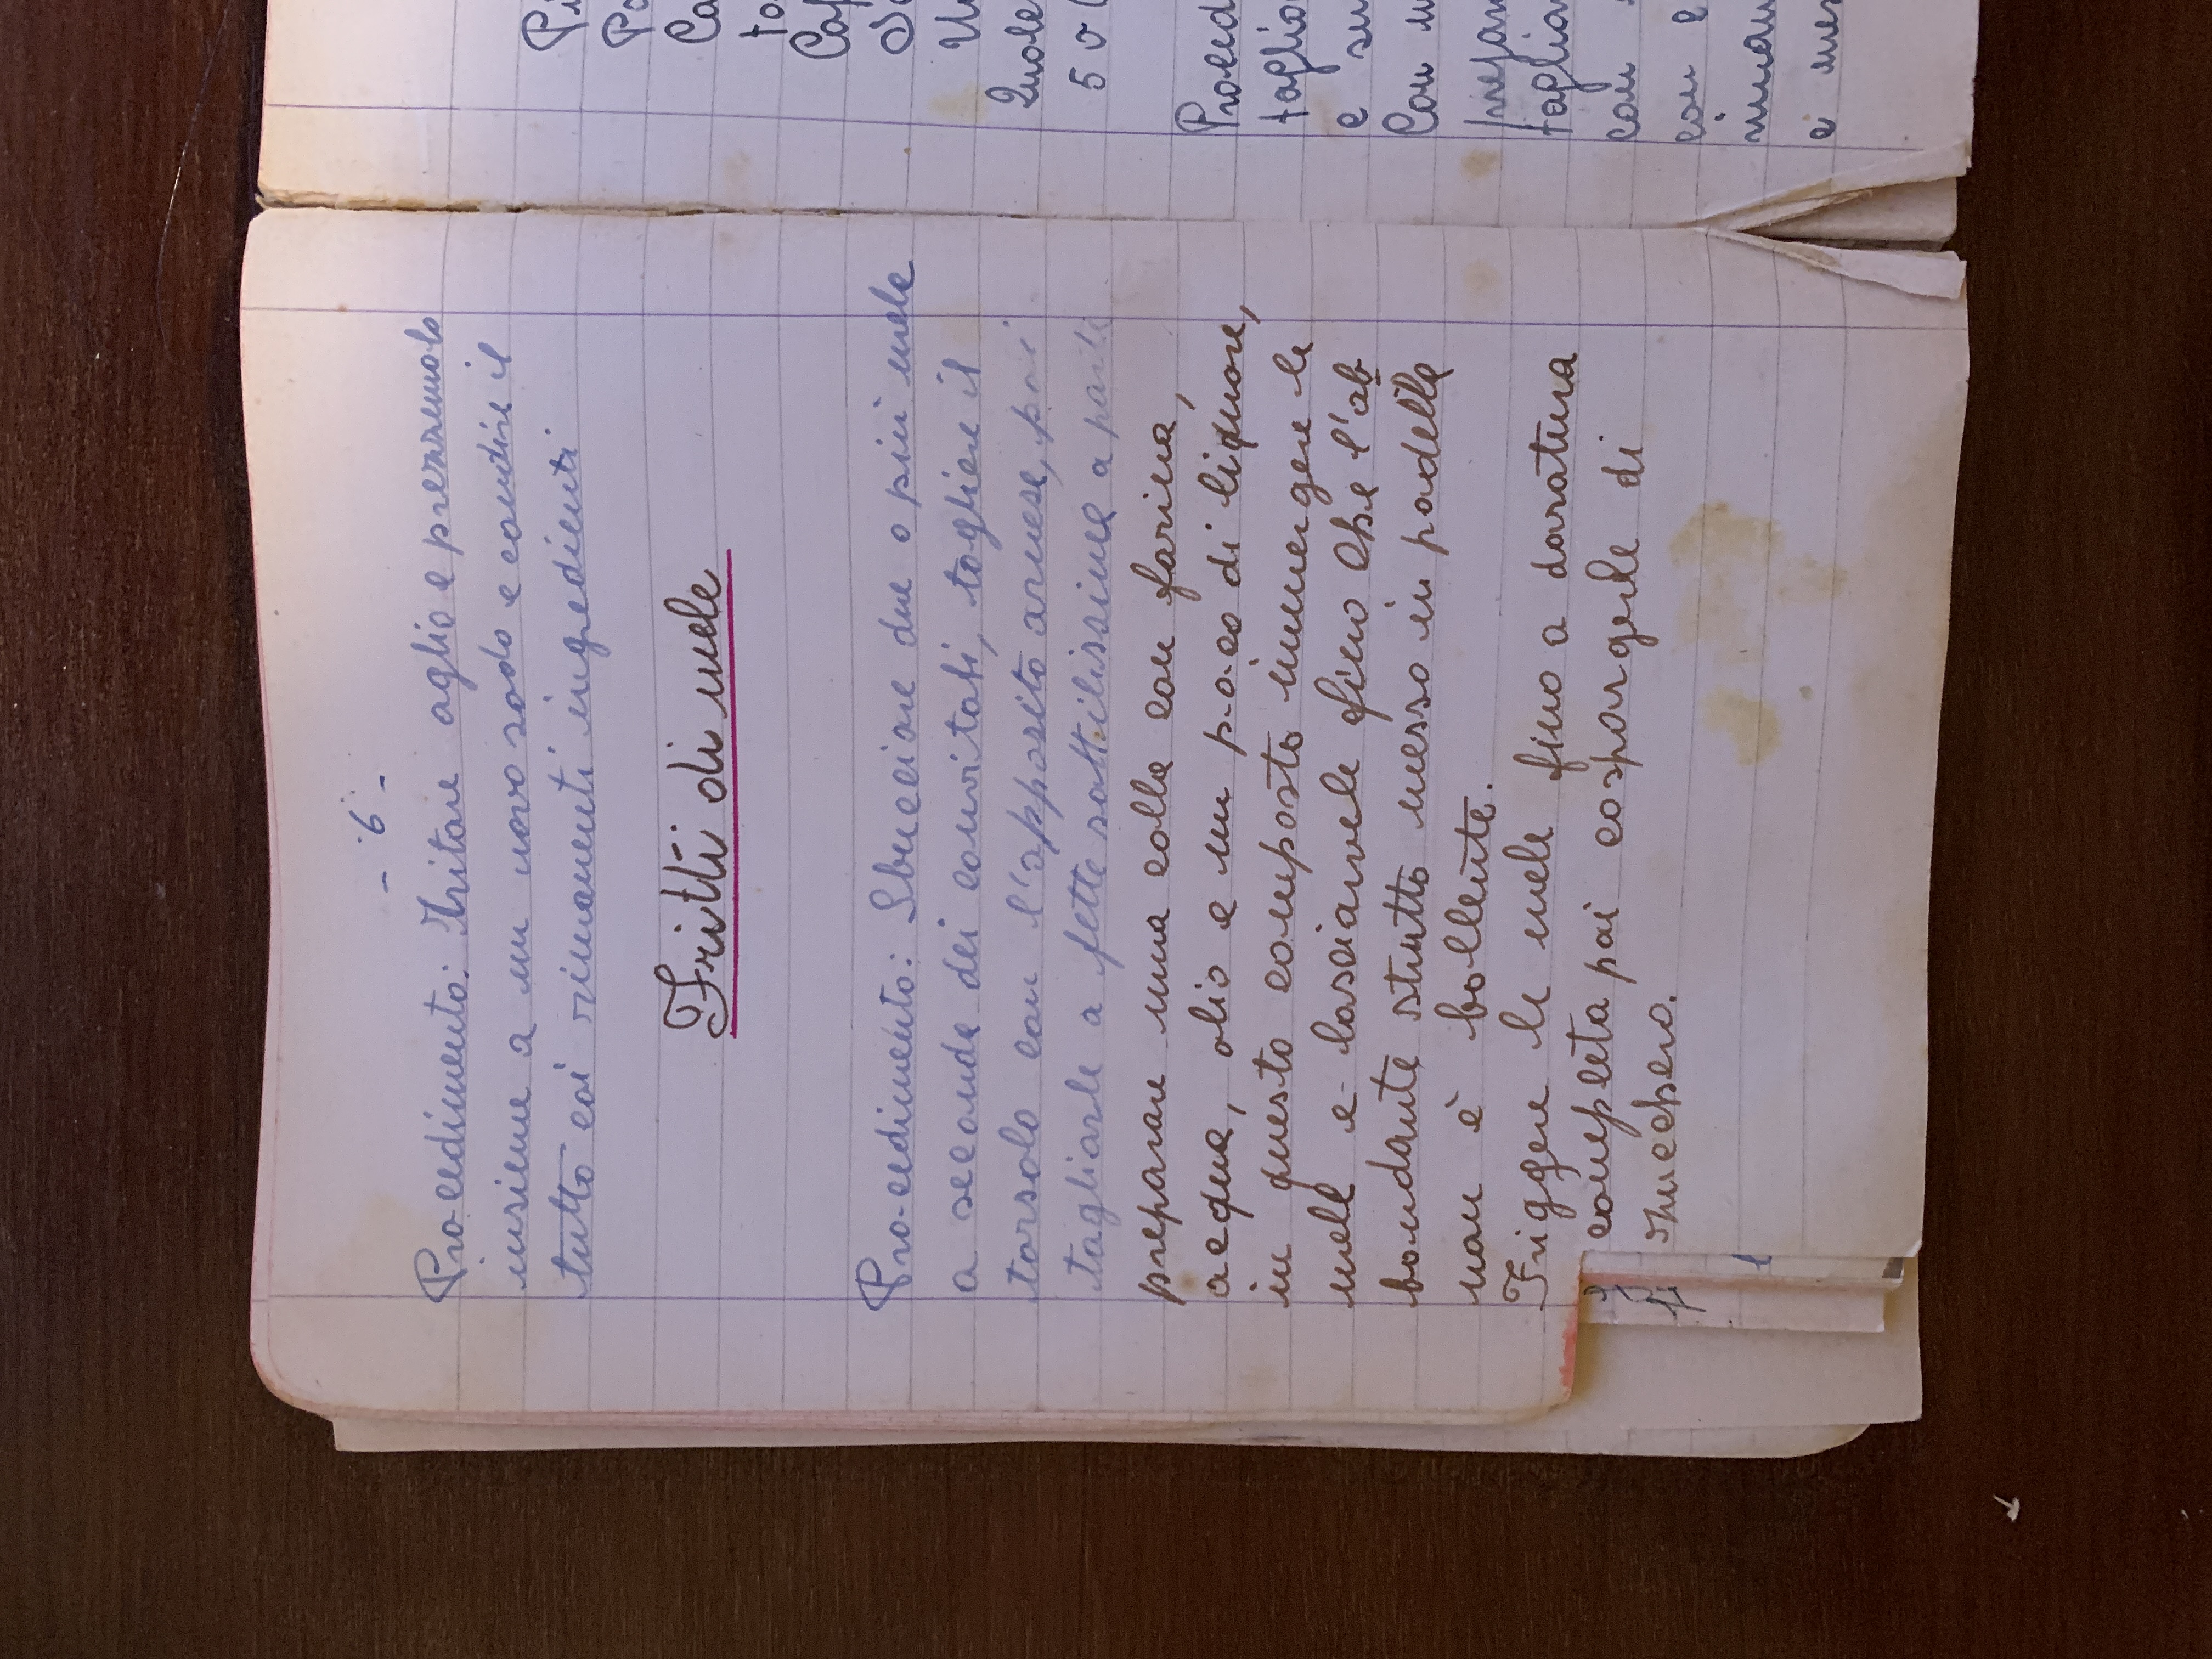 - 6 -
Procedimento: Tritare aglio e prezzemolo
insieme a un uovo sodo e condire il
tutto coi rimanenti ingredienti
Fritti di mele
Procedimento: Sbucciare due o più mele
a seconda dei convitati, togliere il
torsolo con l'apposito arnese, poi
tagliarle a fette sottilissime a parte
preparare una colla con farina,
acqua, olio e un poco di liquore,
in questo composto immergere le
mele e lasciarvele fino che l'ab
bondante strutto messo in padella
non è bollente.
Friggere le mele fino a doratura
completa poi cospargerle di
zucchero.
Pi
Po
Ca
to
Caf
Un
Quale
50
Proced
taglia
e su
Con u
prepar
taglia
con
con e
riman
e mes